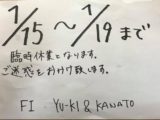 1/15 ～ 1/19 まで
臨時休業となります。
ご迷惑をおかけ致します。
FI YU-KI & KANATO